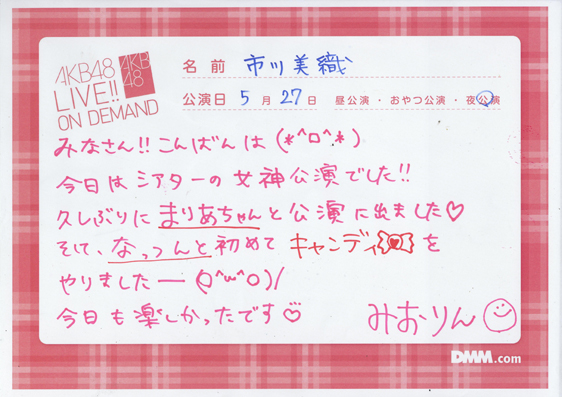 AKB48
LIVE!!
ON DEMAND
AKB
48
名前 市川美織
公演日 5月27日 昼公演・おやつ公演・夜公演
みなさん!!こんばんは(*^o^*)
今日はシアターの女神公演でした!!
久しぶりにまりあちゃんと公演に出ました♡
そして、なっつんと初めてキャンディを
やりましたー(Q^ω^O)/
今日も楽しかったです♡
みおりん
DMM.com